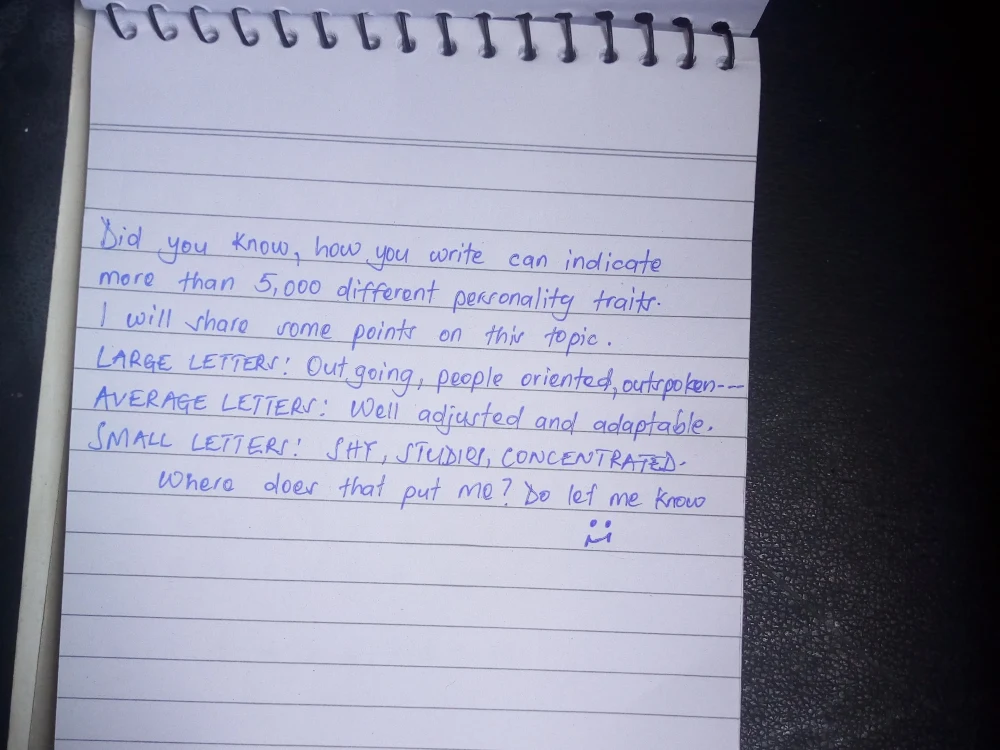 Did you know, how you write can indicate
more than 5,000 different personality traits.
I will share some points on this topic.
LARGE LETTERS: Out going, people oriented, outspoken---
AVERAGE LETTERS: Well adjusted and adaptable.
SMALL LETTERS: SHY, STUDIOS, CONCENTRATED.
Where does that put me? Do let me know